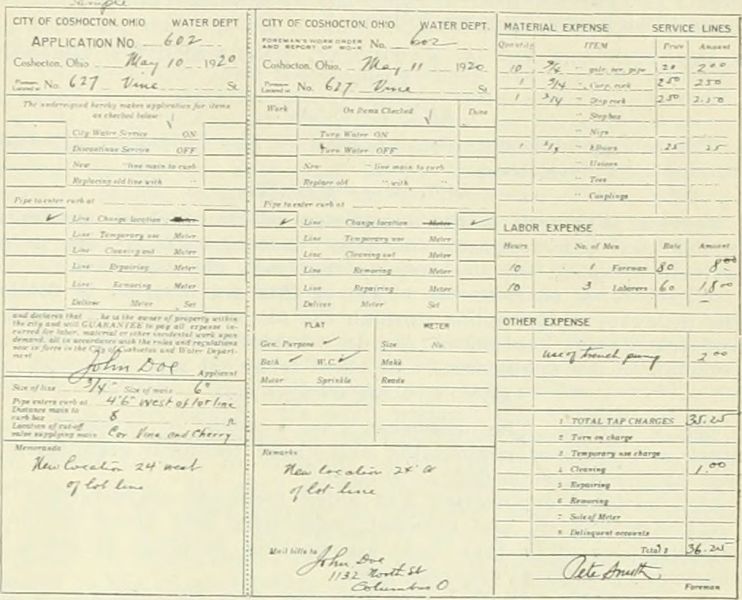 Sample
CITY OF COSHOCTON, OHIO WATER DEPT
APPLICATION No. 602
Coshocton, Ohio May 10 1920
Premises Located at No. 627 Vine St
The undersigned hereby makes application for items
as checked below
City Water Service ON
Discontinue Service OFF
New " line main to curb
Replacing old line with "
Pipe to enter curb at
✓ Line Change location Meter
Line Temporary use Meter
Line Cleaning out Meter
Line Repairing Meter
Line Removing Meter
Deliver Meter Set
and declares that he is the owner of property within
the city and will GUARANTEE to pay all expense in-
curred for labor, material or other incidental work upon
demand, all in accordance with the rules and regulations
now in force in the City of Coshocton and Water Depart-
ment
John Doe Applicant
Size of line 3/4" Size of main 6"
Pipe enters curb at 4'6" west of lot line
Distance main to
curb box 8 ft
Location of cut-off
valve supplying main Cor Vine and Cherry
Memoranda
New location 24" west
of lot line
CITY OF COSHOCTON, OHIO WATER DEPT.
FOREMAN'S WORK ORDER
AND REPORT OF WORK No. 602
Coshocton, Ohio, May 11 1920
Premises Located at No. 627 Vine St
Work On Items Checked Done
Turn Water ON
Turn Water OFF
New " line main to curb
Replace old " with "
Pipe to enter curb at
✓ Line Change location Meter ✓
Line Temporary use Meter
Line Cleaning out Meter
Line Removing Meter
Line Repairing Meter
Deliver Meter Set
FLAT METER
Gen. Purpose ✓ Size No.
Bath ✓ W.C. ✓ Make
Motor Sprinkle Reads
Remarks
New location 24"
of lot line
Mail bills to John Doe
1132 North St
Columbus O
MATERIAL EXPENSE SERVICE LINES
Quantity ITEM Price Amount
10 3/4 " galv. pipe 20 2 00
1 3/4 " Corp. cock 2 50 2 50
1 3/4 " Stop cock 2 50 2 50
" Stop box
" Nips
1 " Elbows 25 25
" Unions
" Tees
" Couplings
LABOR EXPENSE
Hours No. of Men Rate Amount
10 1 Foreman 80 8 00
10 3 Laborers 60 18 00
OTHER EXPENSE
use of trench pump 2 00
1 TOTAL TAP CHARGES 35.25
2 Turn on charge
3 Temporary use charge
4 Cleaning 1.00
5 Repairing
6 Removing
7 Sale of Meter
8 Delinquent accounts
Total $ 36.25
Pete Smith
Foreman